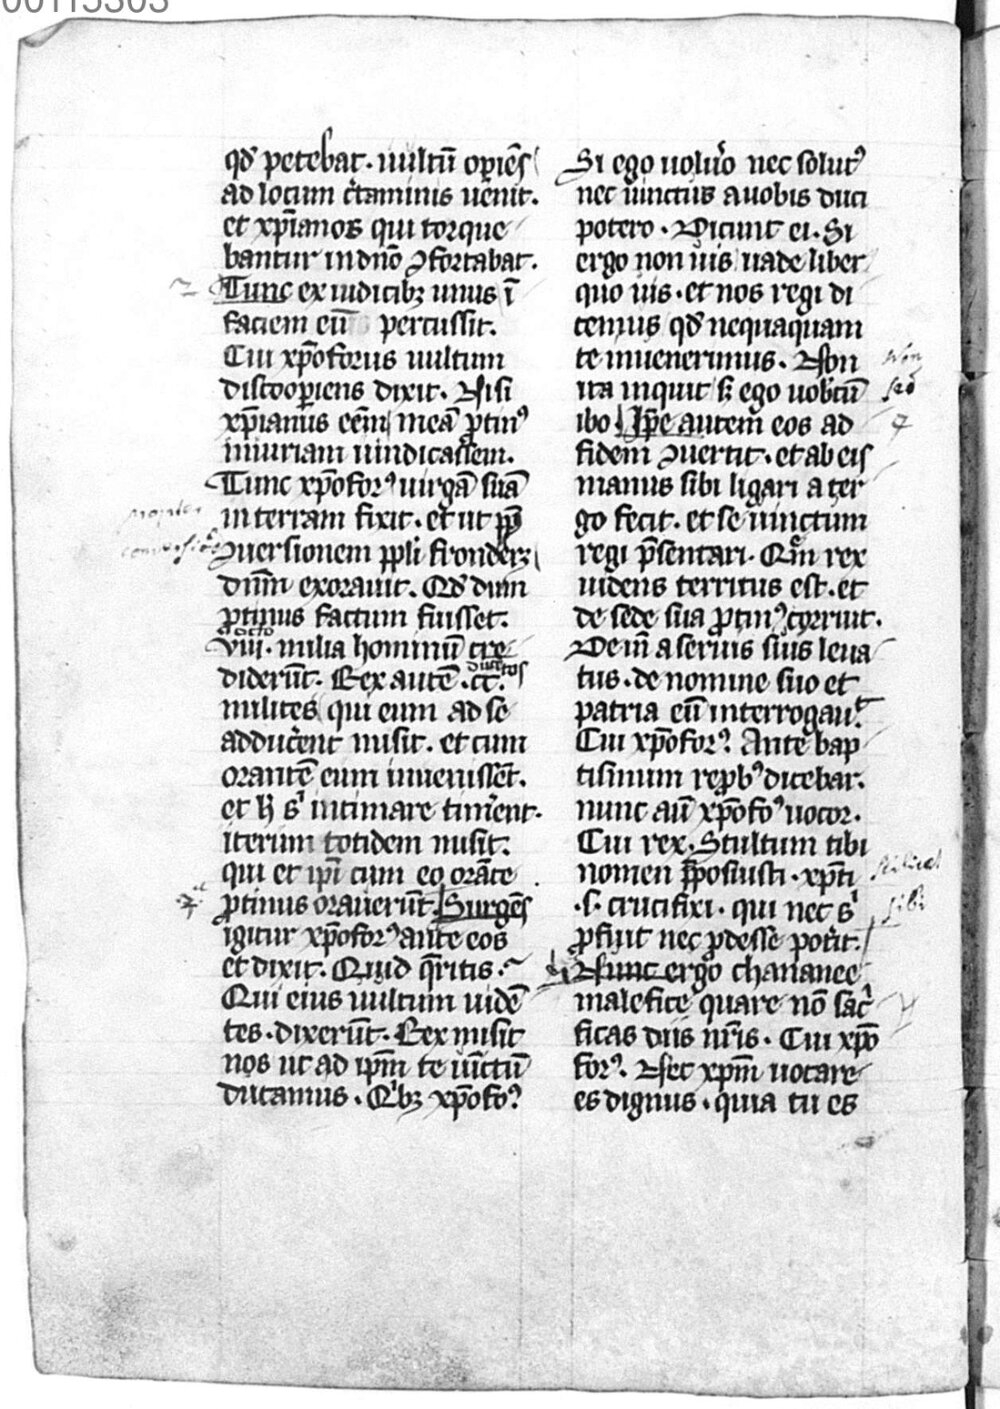 00115303
qd̄ petebat. uultū op̱iēs
ad locum c̄taminis uēnit.
et xp̄ianos qui torque
bantur in dn̄o ꝯfortabat.
Tunc ex iudicibꝫ unus ī
faciem eū percussit.
Cui xp̄oforus uultum
discoop̱iens dixit. Nisi
xp̄ianus eēm meā ꝓtinꝰ
iniuriam uindicassem.
Tunc xp̄oforꝰ uirgā suā
in terram fixit. et ut ꝓp̄
propter
ꝯuersionem ppl̄i fronderꝫ
conuersionē
dn̄m exorauit. Qd̄ dum
ꝓtinus factum fuisset.
octo
viii. milia hominū cre
diderūt. Rex autē .cc.
ducētos
milites qui eum ad se
adducēnt misit. et cum
orantē eum inuenissēt.
et h̄ s̄ intimare timēent.
iterum totidem misit.
qui et ip̄i cum eo orāte
ꝓtinus orauerūt. Surgēs
igitur xp̄oforꝰ ante eos
et dixit. Quid q̄ritis.
Qui eius uultum uidē
tes. dixerūt. Rex misit
nos ut ad ip̄m te uīctū
ducamus. Qͥbꝫ xp̄ofoꝰ
Si ego uoluͦo nec solutꝰ
nec uinctus a uobis duci
potero. Dicunt ei. Si
ergo non uis uade liber
quo uis. et nos regi di
cemus qd̄ nequaquam
te inuenerimus. Non
Non
ita inquit s̄ ego uob̄cū
sed
ibo. Ip̄e autem eos ad
fidem ꝯuertit. et ab eis
manus sibi ligari a ter
go fecit. et se uinctum
regi p̄sentari. Quē rex
uidens territus est. et
de sede sua ꝓtinꝰ corruit.
Dein̄ a seruis suis leua
tus. de nomine suo et
patria eū interrogauit.
Cui xp̄oforꝰ. Ante bap
tismum rep̱bꝰ dicebar.
nunc aū xp̄ofoꝰ uocor.
Cui rex. Stultum tibi
nomen īposuisti. xp̄ti
scilicet
.s. crucifixi. qui nec s̄
sibi
ꝓfuit nec ꝓdesse potit.
Nunc ergo chananee
malefice quare nō sac̄
ficas diis nr̄is. Cui xp̄o
forꝰ. Nec xp̄m uocare
es dignus. quia tu es